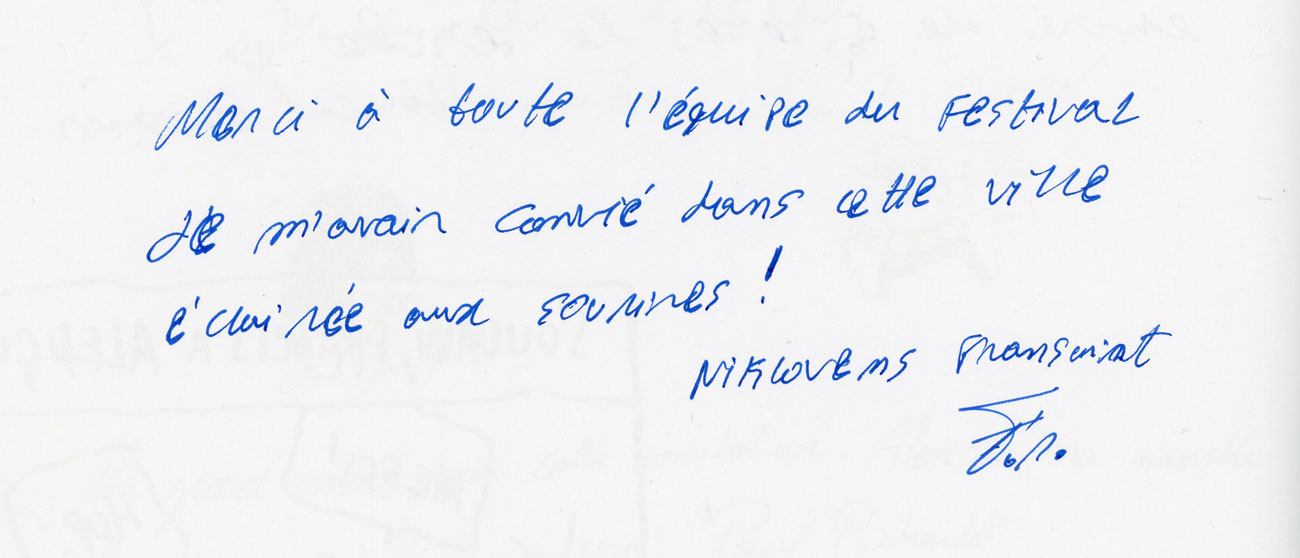 Merci à toute l'équipe du Festival
de m'avoir convié dans cette ville
éclairée aux sourires !
Niklovens Fransaint